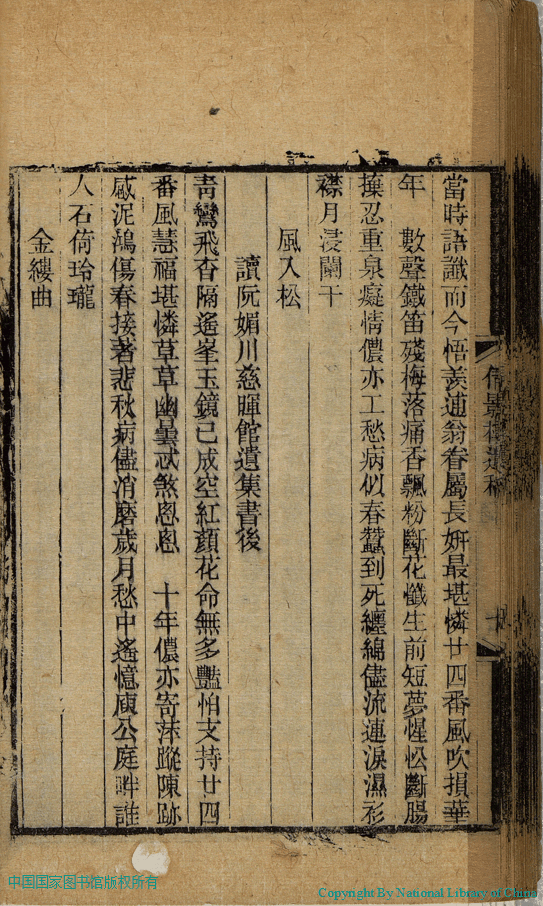 當時語讖而今悟羨逋翁眷屬長妍最堪憐廿四番風吹損華
年　數聲鐵笛殘梅落痛香飄粉斷花懺生前短夢惺忪斷腸
摸忍重泉癡情儂亦工愁病似春蠶到死纏綿儘流連淚濕衫
襟月浸闌干
風入松
讀阮媚川慈暉館遺集書後
靑鸞飛杳隔遙峯玉鏡已成空紅顏花命無多豔怕支持廿四
番風慧福堪憐草草幽曇忒煞悤悤　十年儂亦寄萍蹤陳跡
感泥鴻傷春接著悲秋病儘消磨歲月愁中遙憶庾公庭畔誰
人石倚玲瓏
金縷曲
倩影樓遺稿
十
中国国家图书馆版权所有
Copyright By National Library of China